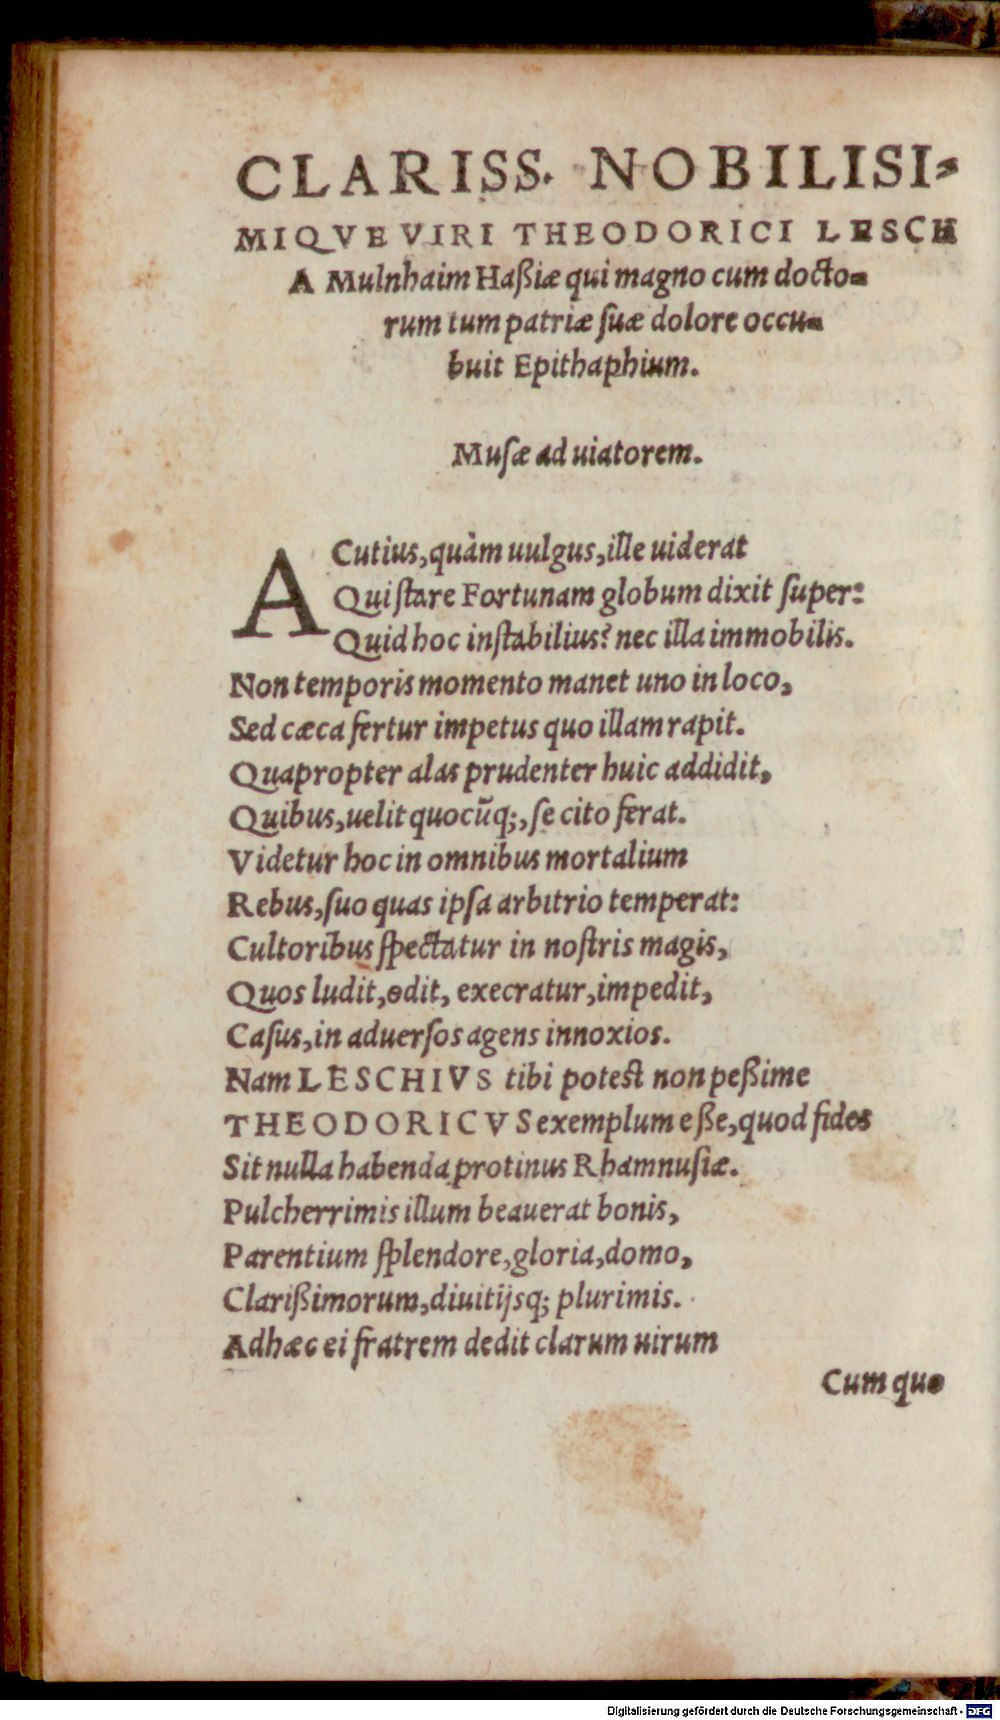 CLARISS. NOBILISI-
MIQVE VIRI THEODORICI LESCH
A Mulnhaim Haßiæ qui magno cum docto-
rum tum patriæ ſuæ dolore occu-
buit Epithaphium.
Muſæ ad uiatorem.
ACutius, quàm uulgus, ille uiderat
Qui ſtare Fortunam globum dixit ſuper:
Quid hoc inſtabilius? nec illa immobilis.
Non temporis momento manet uno in loco,
Sed cæca fertur impetus quo illam rapit.
Quapropter alas prudenter huic addidit,
Quibus, uelit quocũq;, ſe cito ferat.
Videtur hoc in omnibus mortalium
Rebus, ſuo quas ipſa arbitrio temperat:
Cultoribus ſpectatur in noſtris magis,
Quos ludit, odit, execratur, impedit,
Caſus, in aduerſos agens innoxios.
Nam LESCHIVS tibi poteſt non peßime
THEODORICVS exemplum eße, quod fides
Sit nulla habenda protinus Rhamnuſiæ.
Pulcherrimis illum beauerat bonis,
Parentium ſplendore, gloria, domo,
Clarißimorum, diuitijsq; plurimis.
Adhæc ei fratrem dedit clarum uirum
Cum quo
Digitalisierung gefördert durch die Deutsche Forschungsgemeinschaft - DFG